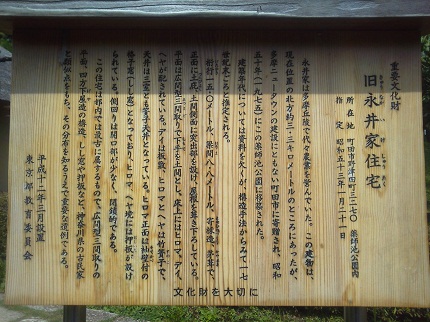 重要文化財
旧永井家住宅
所在地 町田市野津田町三二七〇 薬師池公園内
指定 昭和五十三年一月二十一日
永井家は多摩丘陵で代々農業を営んでいた。この建物は、
現在位置の北方約三・三キロメートルのところにあったが、
多摩ニュータウンの建設にともない町田市に寄贈され、昭和
五十年(一九七五)にこの薬師池公園に移築された。
建築年代については資料を欠くが、構造手法からみて一七
世紀末ごろと推定される。
桁行一五・〇メートル、梁間八・八メートル、寄棟造、茅葺で、
正面に土庇、土間側面に突出部を設け、屋根を葺き下ろしている。
平面は広間型三間取りで下手を土間とし、床上にはヒロマ、デイ、
ヘヤが配されている。デイは板敷、ヒロマとヘヤは竹簀子で、
天井は三室とも簀子天井となっている。ヒロマ正面は
格子窓(しし窓)となっており、ヒロマ、ヘヤ境には押板が設け
られている。側回りは開口部が少なく、閉鎖的である。
この住宅は都内では最古に属するもので、広間型三間取りの
平面、四方下屋造の構造、しし窓や押板など、神奈川県の古民家
と類似点をもち、その分布を知るうえで重要な遺例である。
平成十二年三月設置
東京都教育委員会
文化財を大切に